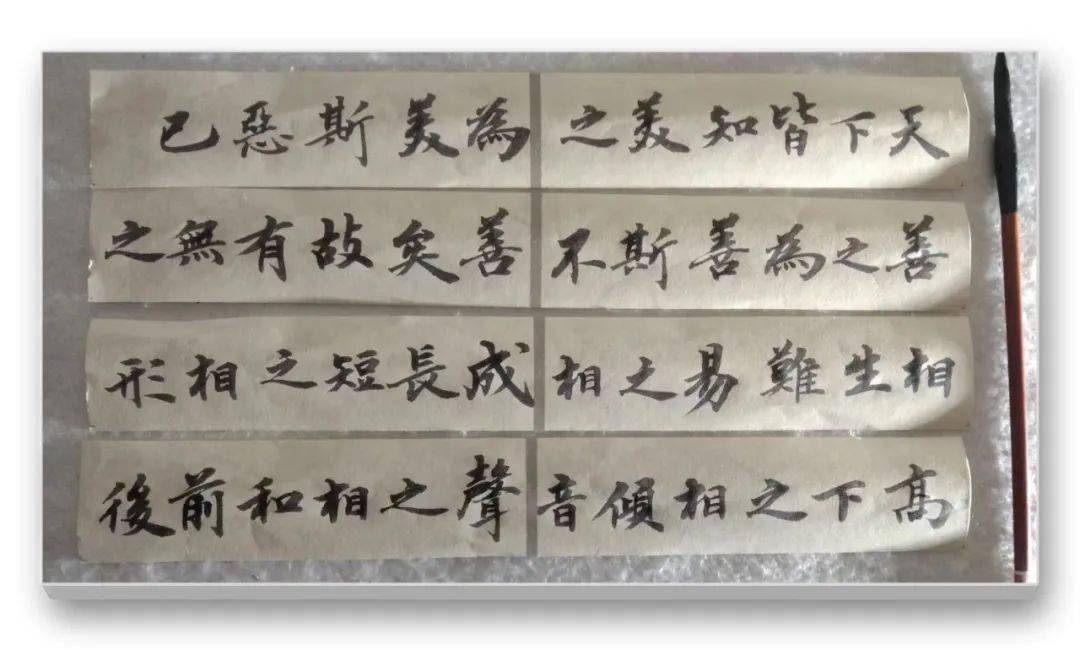 天下皆知美之為美斯惡已
善之為善斯不善矣故有無之
相生難易之相成長短之相形
高下之相傾音聲之相和前後